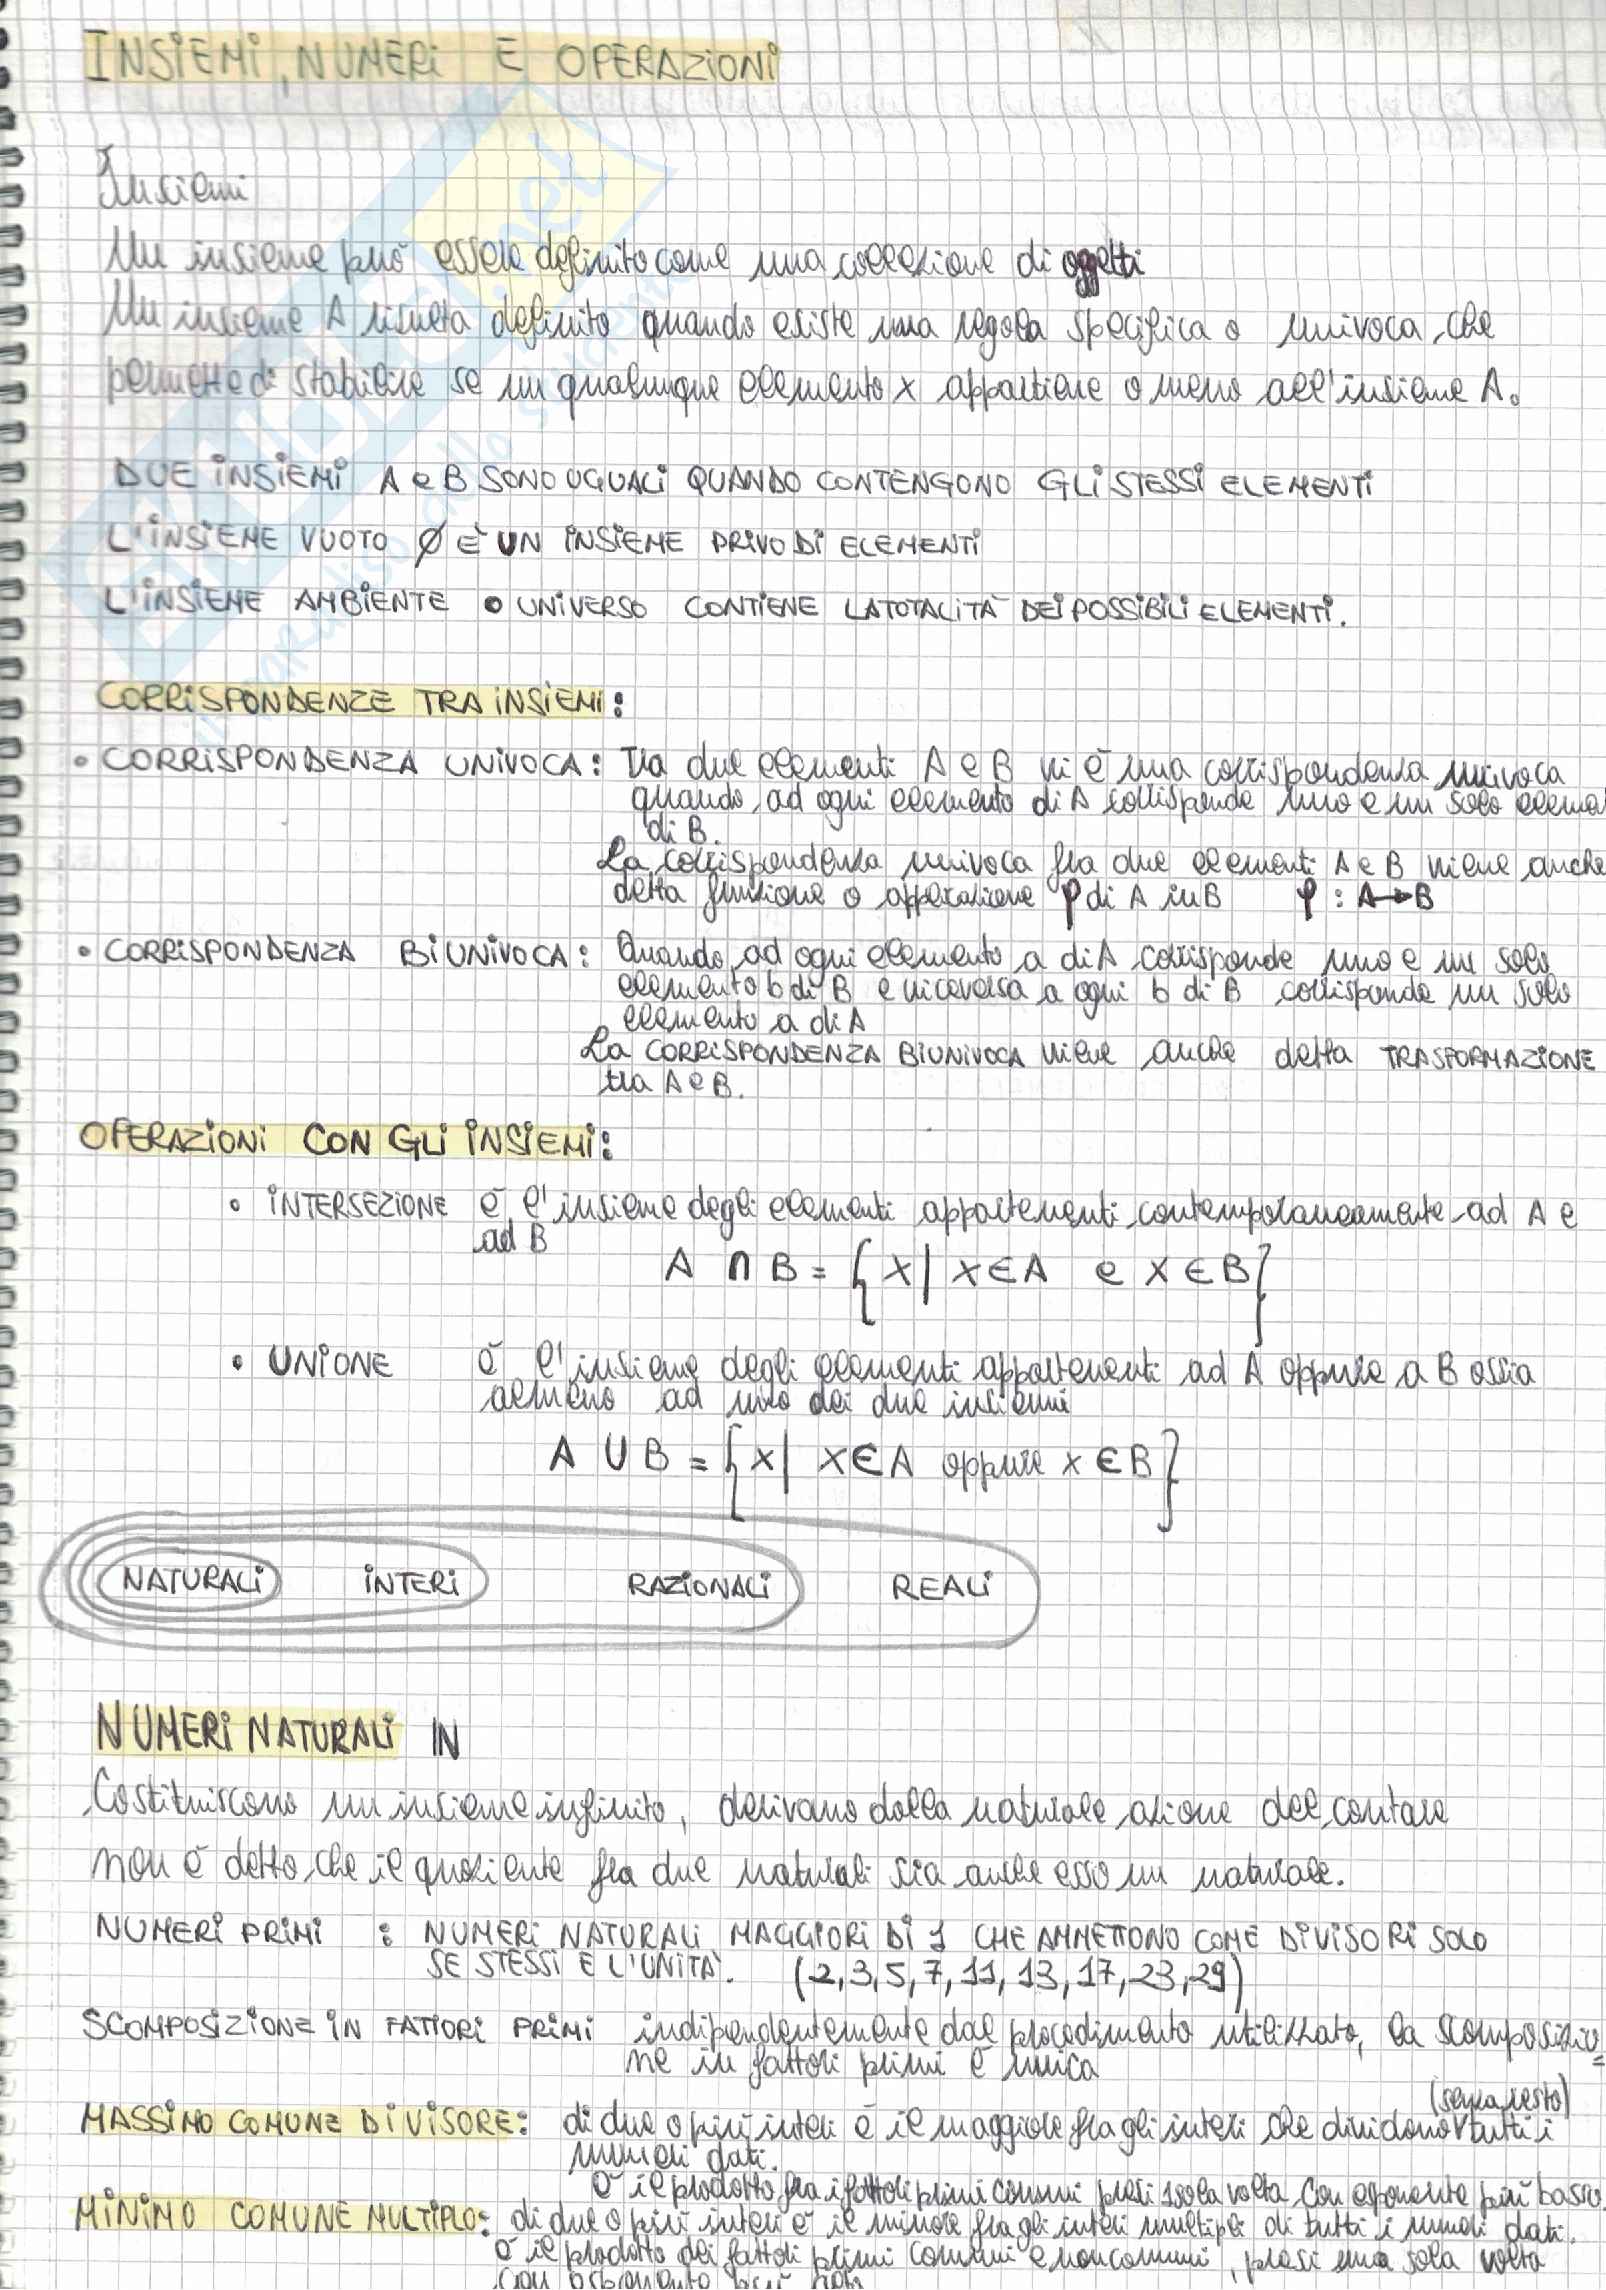 INSIEMI, NUMERI E OPERAZIONI
Insiemi
Un insieme può essere definito come una collezione di oggetti
Un insieme A risulta definito quando esiste una regola specifica o univoca, che
permette di stabilire se un qualunque elemento x appartiene o meno all'insieme A.
DUE INSIEMI A e B SONO UGUALI QUANDO CONTENGONO GLI STESSI ELEMENTI
L'INSIEME VUOTO Ø È UN INSIEME PRIVO DI ELEMENTI
L'INSIEME AMBIENTE O UNIVERSO CONTIENE LA TOTALITÀ DEI POSSIBILI ELEMENTI.
CORRISPONDENZE TRA INSIEMI:
• CORRISPONDENZA UNIVOCA: Tra due elementi A e B vi è una corrispondenza univoca
quando, ad ogni elemento di A corrisponde uno e un solo eleme
di B.
La corrispondenza univoca fra due elementi A e B viene anche
detta funzione o applicazione φ di A in B φ : A→B
• CORRISPONDENZA BIUNIVOCA: Quando, ad ogni elemento a di A corrisponde uno e un solo
elemento b di B e viceversa a ogni b di B corrisponde un solo
elemento a di A
La CORRISPONDENZA BIUNIVOCA viene anche detta TRASFORMAZIONE
tra A e B.
OPERAZIONI CON GLI INSIEMI:
• INTERSEZIONE è l'insieme degli elementi appartenenti contemporaneamente ad A e
ad B
A ∩ B = {x | x ∈ A e x ∈ B}
• UNIONE è l'insieme degli elementi appartenenti ad A oppure a B ossia
almeno ad uno dei due insiemi
A ∪ B = {x | x ∈ A oppure x ∈ B}
NATURALI INTERI RAZIONALI REALI
NUMERI NATURALI IN
Costituiscono un insieme infinito, derivano dalla naturale azione del contare
non è detto che il quoziente fra due naturali sia anche esso un naturale.
NUMERI PRIMI : NUMERI NATURALI MAGGIORI DI 1 CHE AMMETTONO COME DIVISORI SOLO
SE STESSI E L'UNITÀ. (2,3,5,7,11,13,17,23,29)
SCOMPOSIZIONE IN FATTORI PRIMI indipendentemente dal procedimento utilizzato, la scomposizio=
ne in fattori primi è unica
(senza resto)
MASSIMO COMUNE DIVISORE: di due o più interi è il maggiore fra gli interi che dividono tutti i
numeri dati.
è il prodotto fra i fattori primi comuni presi 1 sola volta con esponente più basso.
MINIMO COMUNE MULTIPLO: di due o più interi è il minore fra gli interi multipli di tutti i numeri dati.
è il prodotto dei fattori primi comuni e non comuni, presi una sola volta
con esponente più